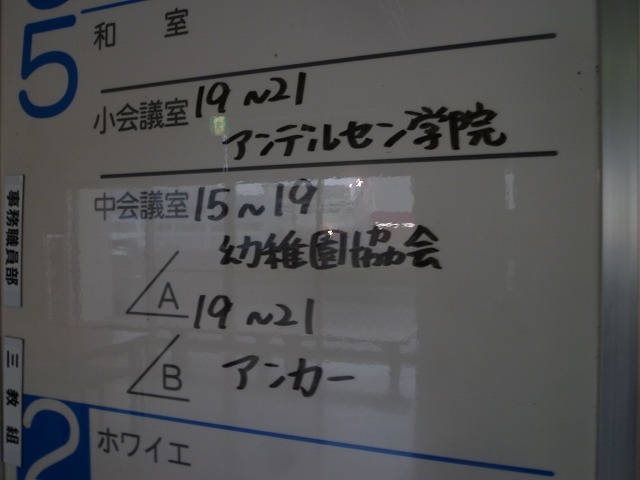 5
和 室
小会議室 19～21
アンデルセン学院
中会議室 15～19
幼稚園協会
A 19～21
B アンカー
事務職員部
三教組
2
ホワイエ